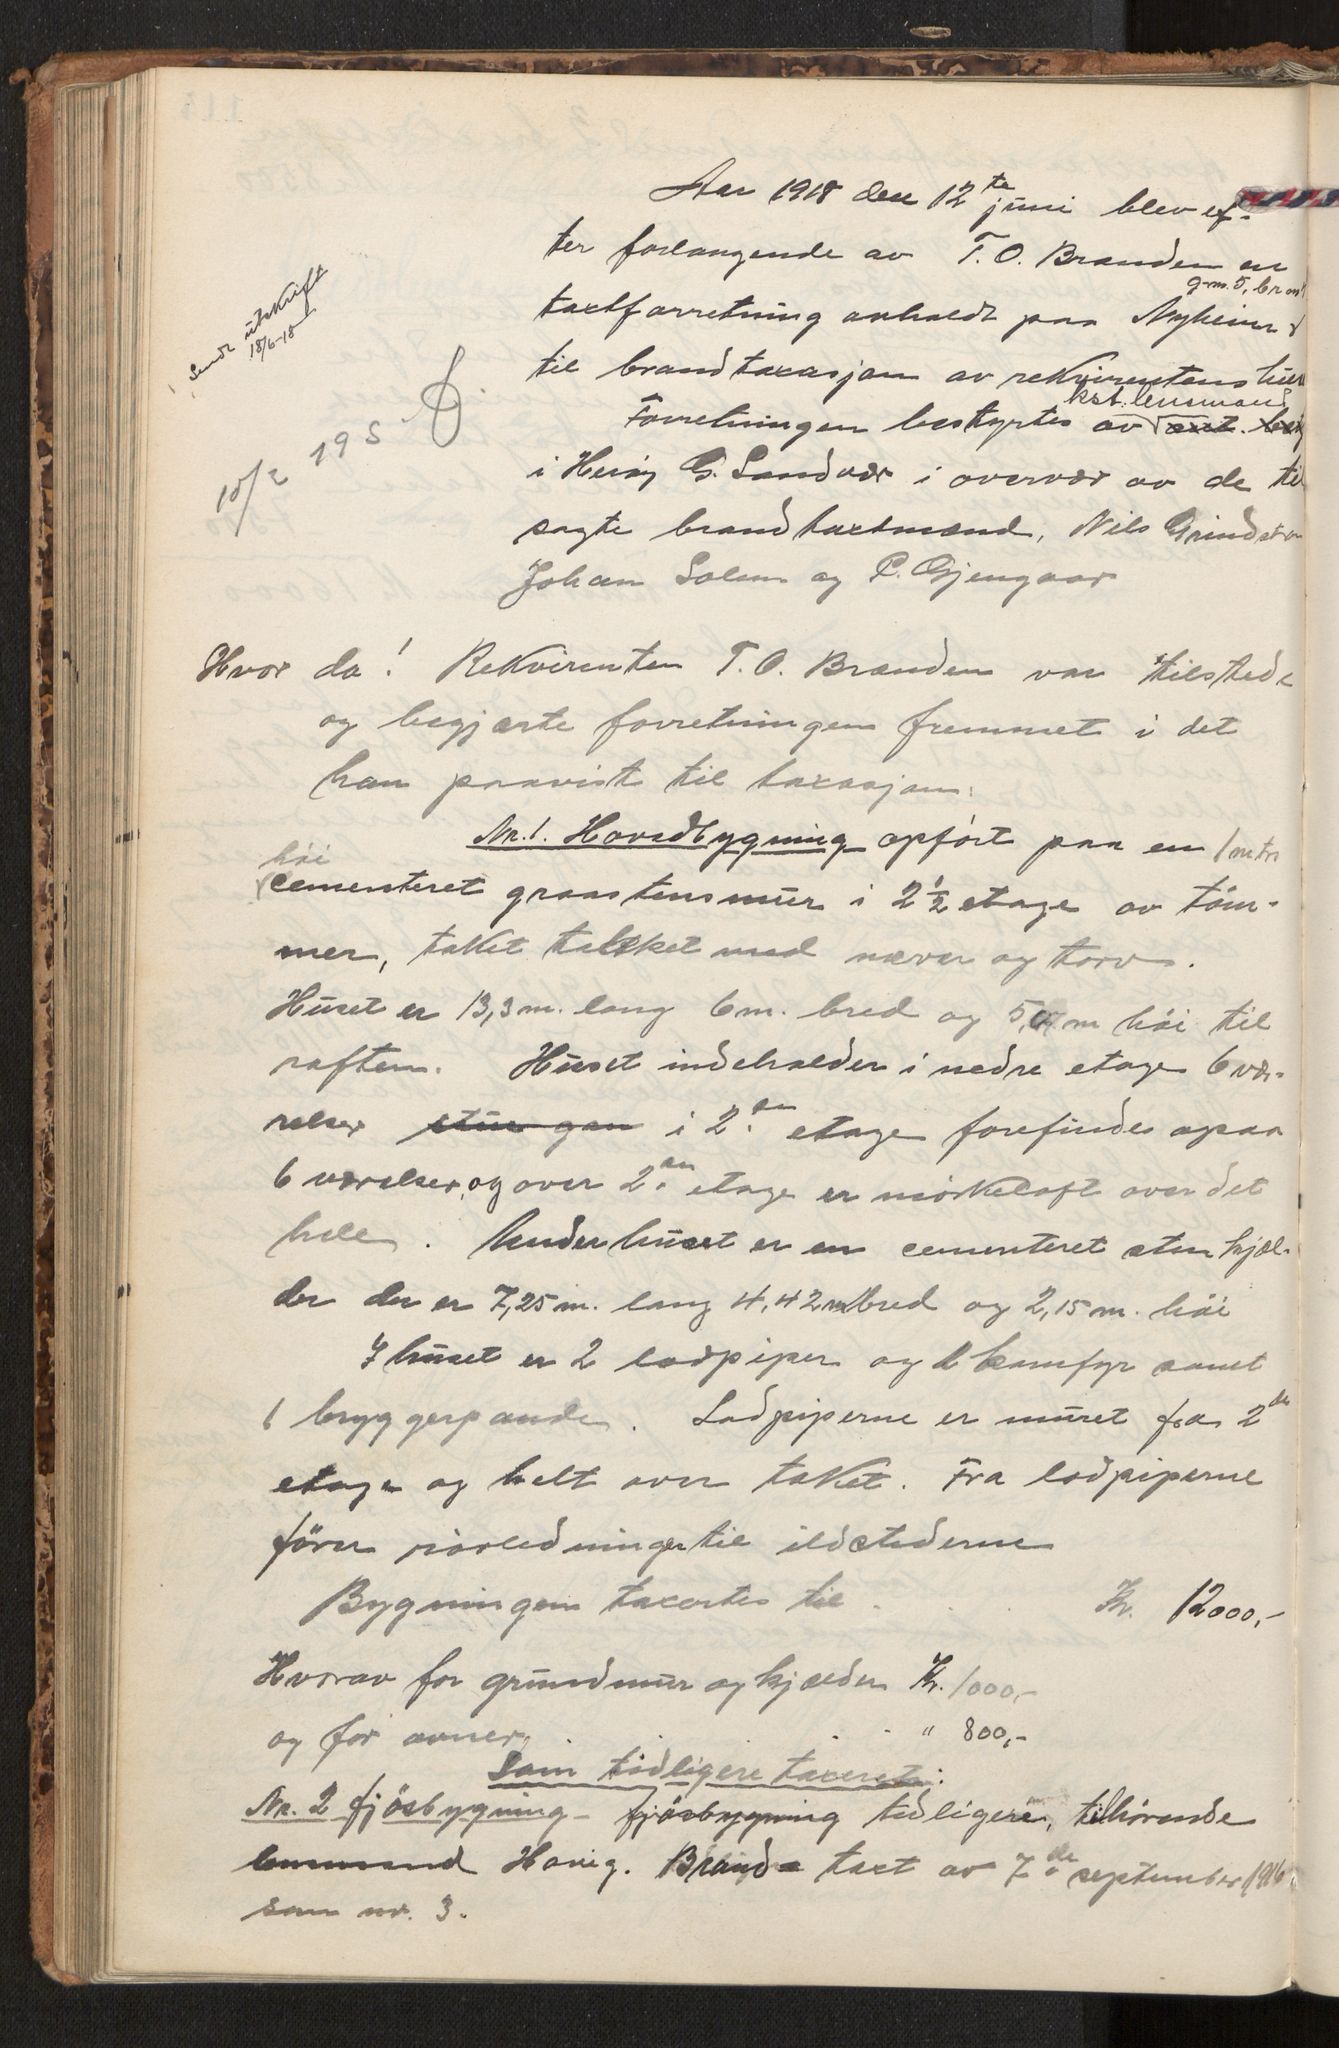 Aar 1918 den 12te juni blev ef-
ter forlangende av T. O. Branden en
g.no. 5, br.no.
taxtforretning avholdt paa Nyheim
Sendt utskrift
18/6-18
til brandtaxasjon av rekvirentens hus
kst. lensmand
Forretningen bestyrtes av
10/2 195
i Herøy G. Sandvær i overvær av de til
sagte brandtaxtmænd, Nils Grindstr
Johan Solem og P. Gjengaar
Hvor da! Rekvirenten T. O. Branden var tilstede
og begjærte forretningen fremmet i det
han paaviste til taxasjon:
Nr. 1. Hovedbygning opført paa en 1 mtr
høi
cementeret graastensmur i 2 1/2 etage av tøm-
mer, taket tækket med næver og torv.
Huset er 13,3 m. lang 6 m. bred og 5, m høi til
raften. Huset indeholder i nedre etage 6 væ-
relser i 2den etage forefindes ogsaa
6 værelser, og over 2den etage er mørkeloft over det
hele. Under huset er en cementeret sten kjæl-
der der er 7,25 m. lang 4,42 m bred og 2,15 m. høi
I huset er 2 lodpiper og komfyr samt
1 bryggerpande. Lodpiperne er muret fra 2den
etage og helt over taket. Fra lodpiperne
fører rørledninger til ildstederne
Bygningen taxertes til . . . Kr. 12000,-
Hvorav for grundmur og kjælder Kr. 1000,-
og for ovner . . " 800,-
Som tidligere taxeret:
Nr. 2 fjøsbygning - fjøsbygning tidligere, tilhørende
lensmand Havig. Brandtaxt av 7de september 1916
som nr. 3.